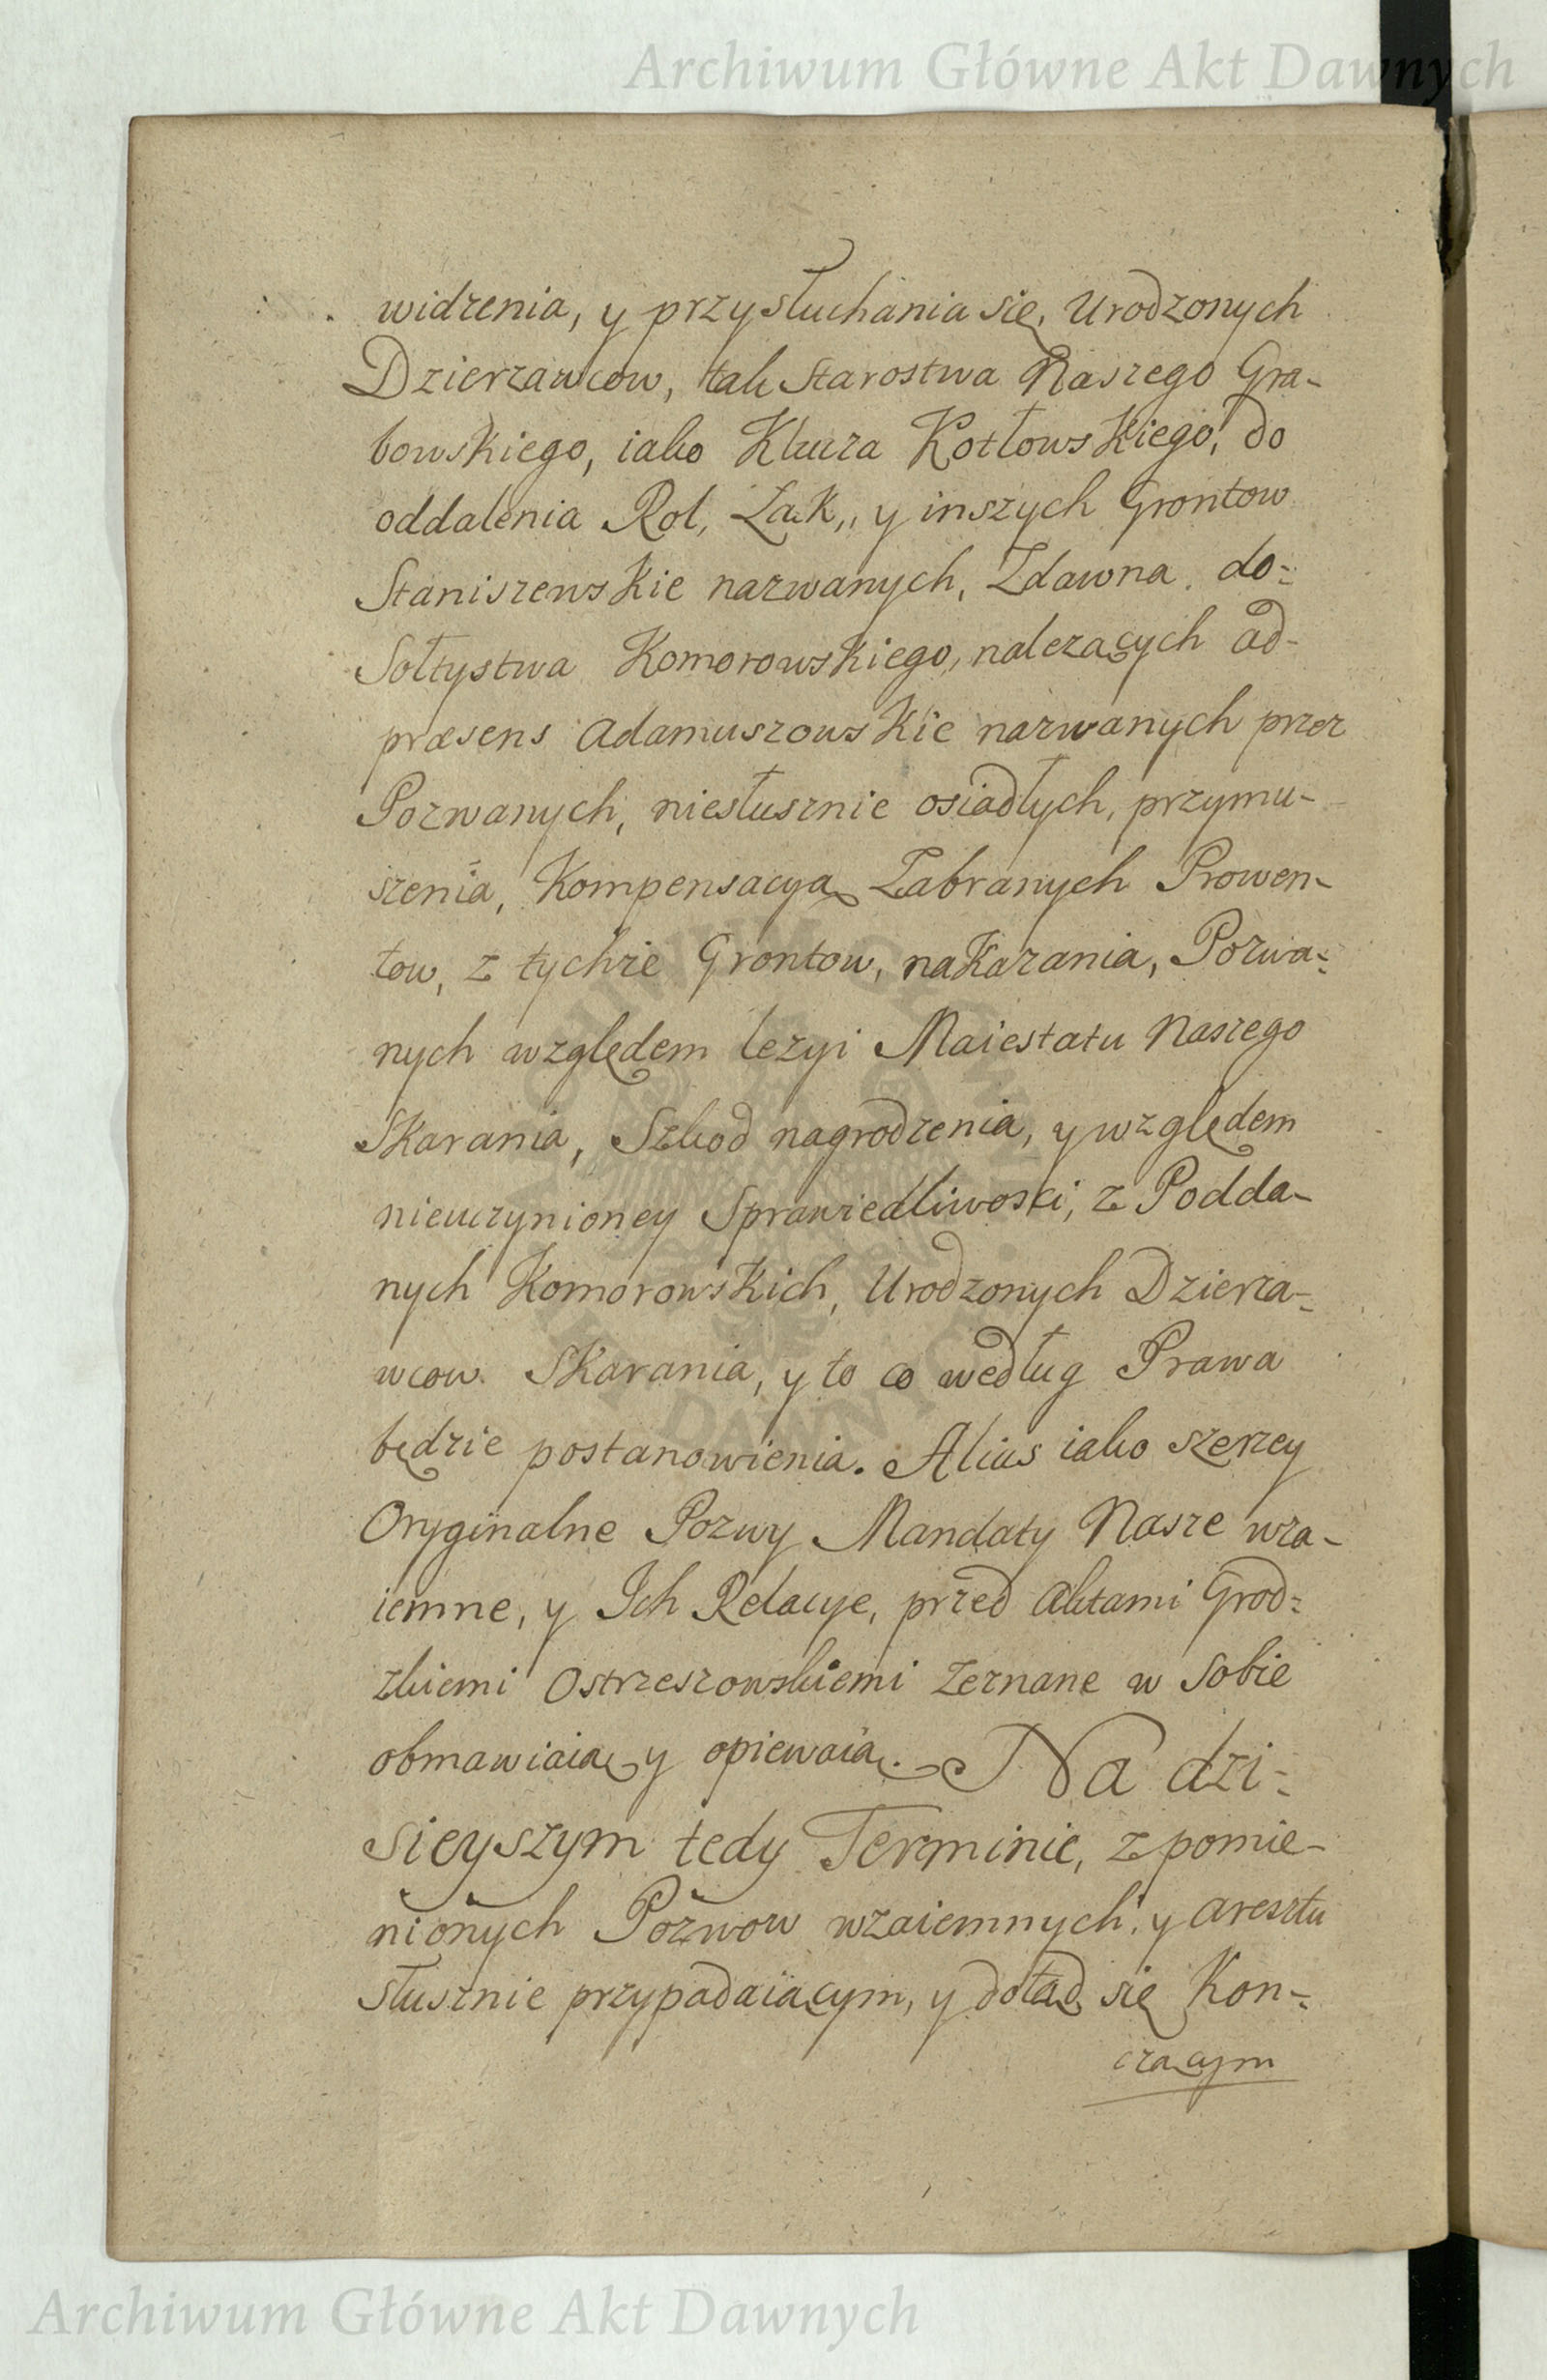 Archiwum Główne Akt Dawnych
widzenia, y przysłuchania się, Urodzonych
Dzierzawcow, tak Starostwa Naszego Gra-
bowskiego, iako Klucza Kotłowskiego, do
oddalenia Rol, Łąk, y inszych Grontow
Staniszewskie nazwanych, Zdawna do-
Sołtystwa Komorowskiego, nalezących ad-
præsens Adamuszowskie nazwanych przez
Pozwanych, niesłusznie osiadłych, przymu-
szenia, Kompensacyą Zabranych Prowen-
tow, z tychże Grontow, nakazania, Pozwa-
nych względem lezyi Maiestatu Naszego
Skarania, Szkod nagrodzenia, y względem
nieuczynioney Sprawiedliwosci, z Podda-
nych Komorowskich, Urodzonych Dzierza-
wcow Skarania, y to co według Prawa
będzie postanowienia. Alias iako szerzey
Oryginalne Pozwy Mandaty Nasze wza-
iemne, y Ich Relacye, przed Aktami Grod-
zkiemi Ostrzeszowskiemi Zeznane w Sobie
obmawiaią y opiewaią. Na dzi-
sieyszym tedy Terminie, z pomie-
nionych Pozwow wzaiemnych, y aresztu
słusznie przypadaiącym, y dotąd się Kon-
czącym
Archiwum Główne Akt Dawnych